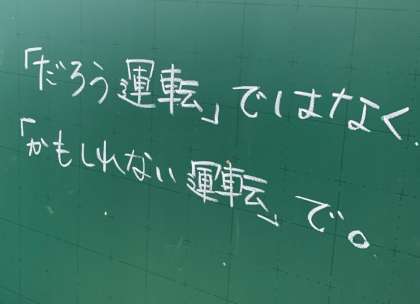 「だろう運転」ではなく、
「かもしれない運転」で。